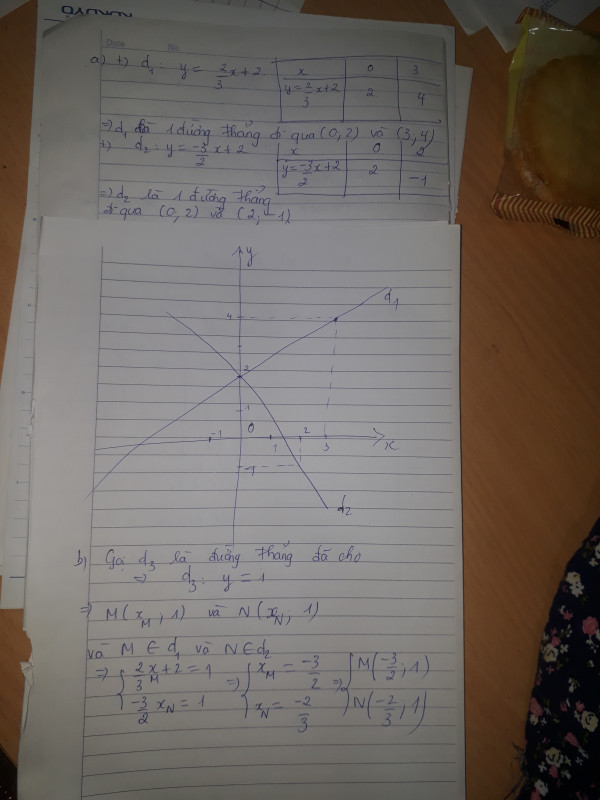 Date No.
a) +) d₁: y = 2/3 x + 2 x 0 3
y = 2/3 x + 2 2 4
=> d₁ là 1 đường thẳng đi qua (0, 2) và (3, 4)
+) d₂: y = -3/2 x + 2 x 0 2
y = -3/2 x + 2 2 -1
=> d₂ là 1 đường thẳng
đi qua (0, 2) và (2, -1)
y
d₁
4
2
1
-1 0 1 2 3 x
-1
d₂
b) Gọi d₃ là đường thẳng đã cho
=> d₃: y = 1
=> M(x_M; 1) và N(x_N; 1)
và M ∈ d₁ và N ∈ d₂
=> { 2/3 x_M + 2 = 1 => { x_M = -3/2 => { M(-3/2; 1)
-3/2 x_N = 1 x_N = -2/3 N(-2/3; 1)